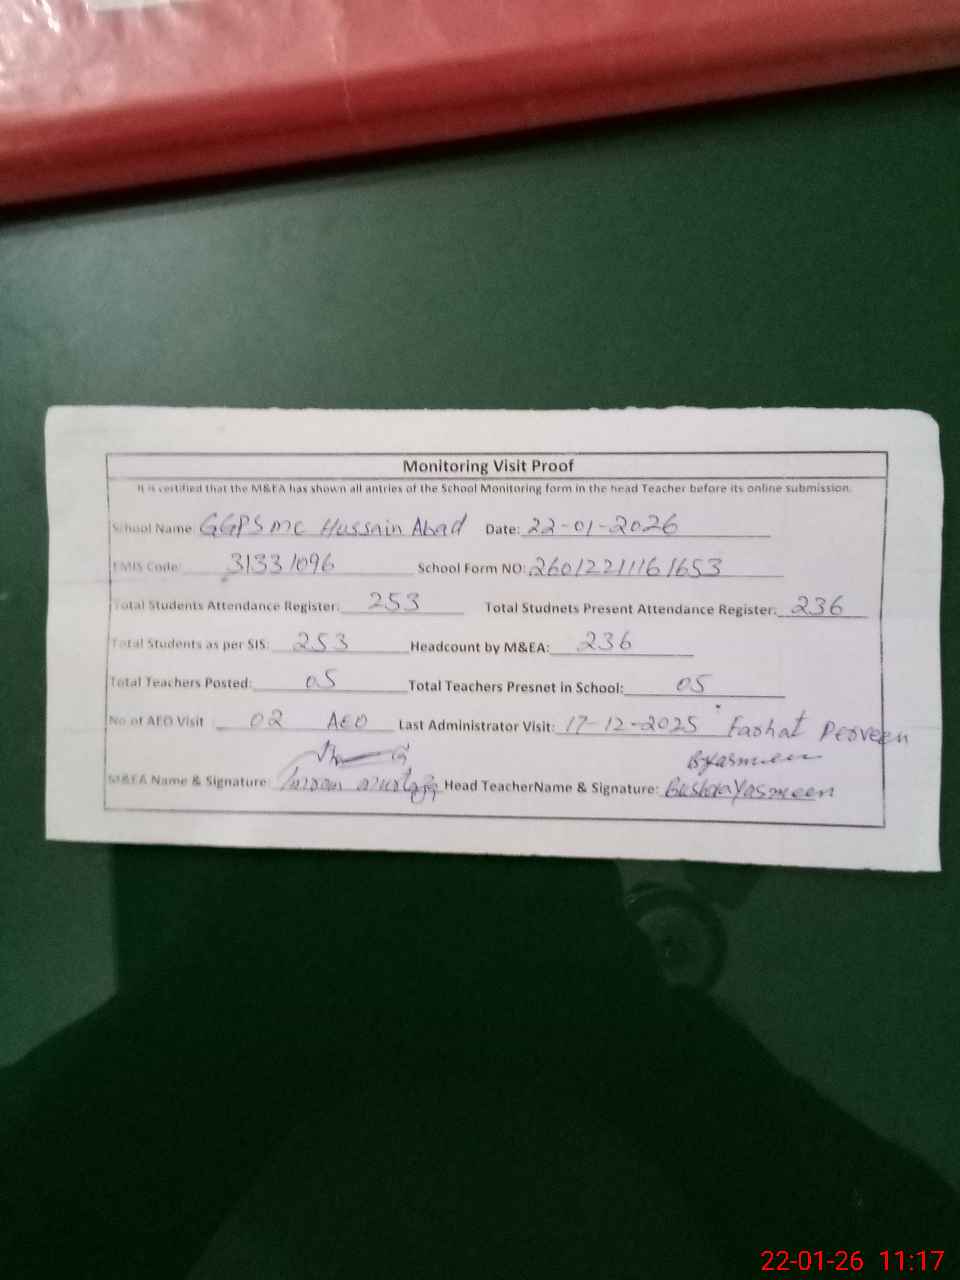 Monitoring Visit Proof
It is certified that the M&EA has shown all antries of the School Monitoring form in the head Teacher before its online submission.
School Name GGPS MC Hussain Abad Date: 22-01-2026
EMIS Code: 31331096 School Form NO: 26012211161653
Total Students Attendance Register: 253 Total Studnets Present Attendance Register: 236
Total Students as per SIS: 253 Headcount by M&EA: 236
Total Teachers Posted: 05 Total Teachers Presnet in School: 05
No of AEO Visit 02 AEO Last Administrator Visit: 17-12-2025 Farhat Perveen
BYasmeen
M&EA Name & Signature: Head TeacherName & Signature: Bushra Yasmeen
22-01-26 11:17